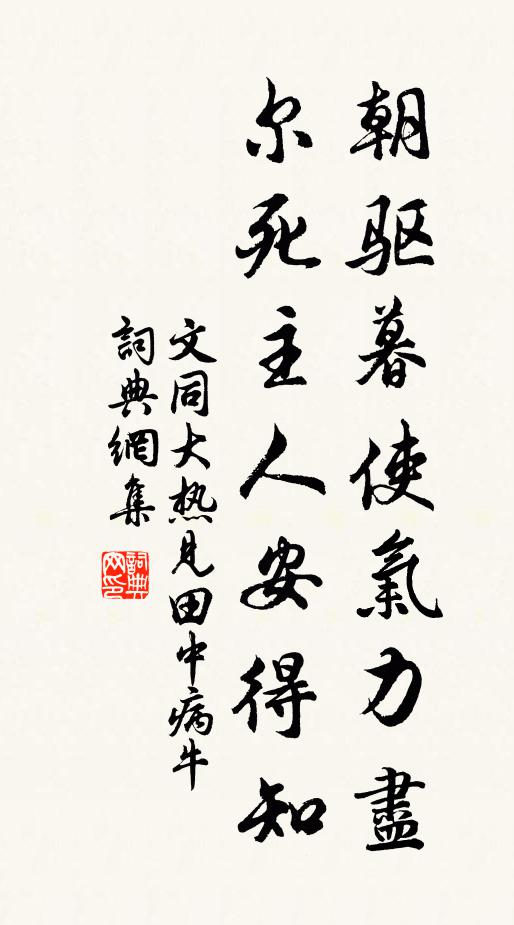 朝驱暮使氣力盡
尔死主人安得知
文同大热見田中病牛
詞典網集
詞典網印